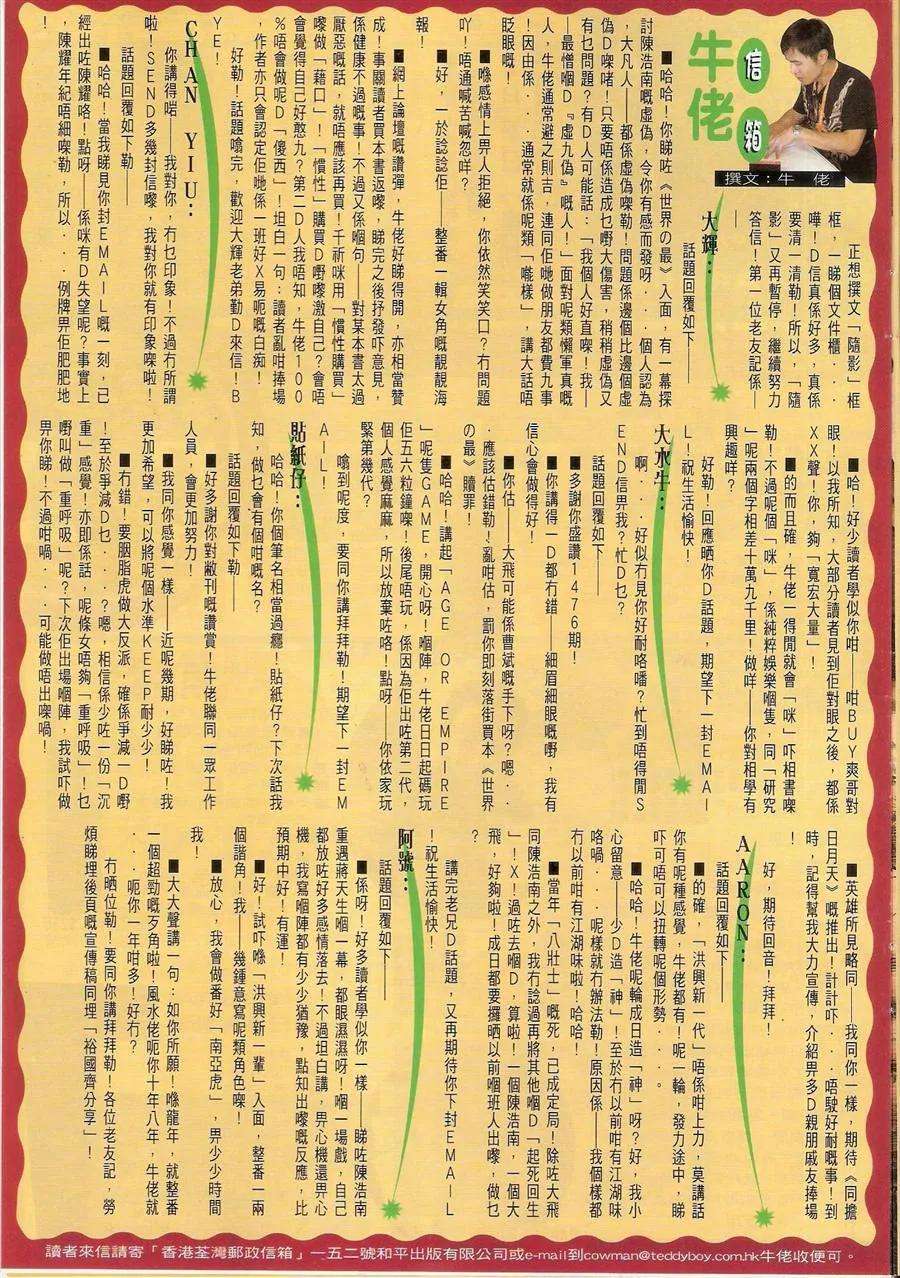 牛佬
信箱
撰文：牛　佬
正想撰文「隨影」框
框，一睇個文件櫃‧‧
嘩！D信真係好多，真係
要清一清勒！所以，「隨
影」又再暫停，繼續努力
答信！第一位老友記係—
—
大輝：
話題回覆如下——
■哈哈！你睇咗《世界の最》入面，有一幕探
討陳浩南嘅虛偽，令你有感而發呀‧‧個人認為
，大凡人——都係虛偽㗎勒！問題係邊個比邊個虛
偽D㗎啫！只要唔係造成乜嘢大傷害，稍稍虛偽又
有乜問題？有D人可能話：「我個人好直㗎！我—
—最憎嗰D『虛九偽』嘅人！」面對呢類懶軍真嘅
人，牛佬通常避之則吉，連同佢哋做朋友都費九事
！因由係‧‧通常就係呢類「嘥樣」，講大話唔
眨眼嘅！
■喺感情上畀人拒絕，你依然笑笑口？冇問題
吖！唔通喊苦喊忽咩？
■好，一於諗諗佢——整番一輯女角嘅靚靚海
報！
■網上論壇嘅讚彈，牛佬好睇得開，亦相當贊
成！事關讀者買本書返嚟，睇完之後抒發吓意見，
係健康不過嘅事！不過又係嗰句——對某本書太過
厭惡嘅話，就唔應該再買！千祈咪用「慣性購買」
嚟做「藉口」！「慣性」購買D嘢嚟激自己？會唔
會覺得自己好憨九？第二D人我唔知，牛佬100
%唔會做呢D「傻西」！坦白一句：讀者亂咁捧場
，作者亦只會認定佢哋係一班好X易呃嘅白痴！
好勒！話題噏完，歡迎大輝老弟勤D來信！B
YE！
CHAN YIU：
你講得啱——我對你，冇乜印象！不過冇所謂
啦！SEND多幾封信嚟，我對你就有印象㗎啦！
話題回覆如下勒——
■哈哈！當我睇見你封EMAIL嘅一刻，已
經出咗陳耀咯！點呀——係咪有D失望呢？事實上
，陳耀年紀唔細㗎勒，所以‧‧例牌畀佢肥肥地
！
■哈！好少讀者學似你咁——咁BUY爽哥對
眼！以我所知，大部分讀者見到佢對眼之後，都係
XX聲！你，夠「寬宏大量」！
■的而且確，牛佬一得閒就會「咪」吓相書㗎
勒！不過呢個「咪」，係純粹娛樂嗰隻，同「研究
」呢兩個字相差十萬九千里！做咩——你對相學有
興趣咩？
好勒！回應晒你D話題，期望下一封EMAI
L！祝生活愉快！
大水牛：
啊‧‧好似冇見你好耐咯噃？忙到唔得閒S
END信畀我？忙D乜？
話題回覆如下——
■多謝你盛讚1476期！
■你講得一D都冇錯——細眉細眼嘅嘢，我有
信心會做得好！
■你估——大飛可能係曹斌嘅手下呀？嗯‧‧
應該估錯勒！亂咁估，罰你即刻落街買本《世界
の最》贖罪！
■哈哈！講起「AGE OR EMPIRE
」呢隻GAME，開心呀！嗰陣，牛佬日日起碼玩
佢五六粒鐘㗎！後尾唔玩，係因為佢出咗第二代，
個人感覺麻麻，所以放棄咗咯！點呀——你依家玩
緊第幾代？
噏到呢度，要同你講拜拜勒！期望下一封EM
AIL！
貼紙仔：
哈哈！你個筆名相當過癮！貼紙仔？下次話我
知，做乜會有個咁嘅名？
話題回覆如下勒——
■好多謝你對敝刊嘅讚賞！牛佬聯同一眾工作
人員，會更加努力！
■我同你感覺一樣——近呢幾期，好睇咗！我
更加希望，可以將呢個水準KEEP耐少少！
■冇錯！要胭脂虎做大反派，確係爭減一D嘢
！至於爭減D乜‧‧？嗯，相信係少咗一份「沉
重」感覺！亦即係話，呢條女唔夠「重呼吸」！乜
嘢叫做「重呼吸」呢？下次佢出場嗰陣，我試吓做
畀你睇！不過咁喎‧‧可能做唔出㗎喎！
■英雄所見略同——我同你一樣，期待《同擔
日月天》嘅推出！計計吓‧‧唔駛好耐嘅事！到
時，記得幫我大力宣傳，介紹畀多D親朋戚友捧場
！
好，期待回音！拜拜！
AARON：
話題回覆如下——
■的確，「洪興新一代」唔係咁上力，莫講話
你有呢種感覺，牛佬都有！呢一輪，發力途中，睇
吓可唔可以扭轉呢個形勢‧‧。
■哈哈！牛佬呢輪成日造「神」呀？好，我小
心留意——少D造「神」！至於冇以前咁有江湖味
咯喎‧‧呢樣就冇辦法勒！原因係——我個樣都
冇以前咁有江湖味啦！哈哈！
■當年「八壯士」嘅死，已成定局！除咗大飛
同陳浩南之外，我冇諗過再將其他嗰D「起死回生
」！X！過咗去嗰D，算啦！一個陳浩南，一個大
飛，好夠啦！成日都要攞晒以前嗰班人出嚟，做乜
？
講完老兄D話題，又再期待你下封EMAIL
！祝生活愉快！
阿號：
話題回覆如下——
■係呀！好多讀者學似你一樣——睇咗陳浩南
重遇蔣天生嗰一幕，都眼濕濕呀！嗰一場戲，自己
都放咗好多感情落去！不過坦白講，畀心機還畀心
機，我寫嗰陣都有少少猶豫，點知出嚟嘅反應，比
預期中好！有運！
■好！試吓喺「洪興新一輩」入面，整番一兩
個諧角！我——幾鍾意寫呢類角色㗎！
■放心，我會做番好「南亞虎」，畀少少時間
我！
■大大聲講一句：如你所願！喺龍年，就整番
一個超勁嘅歹角啦！風水佬呃你十年八年，牛佬就
‧‧呃你一年咁多！好冇？
冇晒位勒！要同你講拜拜勒！各位老友記，勞
煩睇埋後頁嘅宣傳稿同埋「裕國齊分享」！
讀者來信請寄「香港荃灣郵政信箱」一五二號和平出版有限公司或e-mail到cowman@teddyboy.com.hk牛佬收便可。